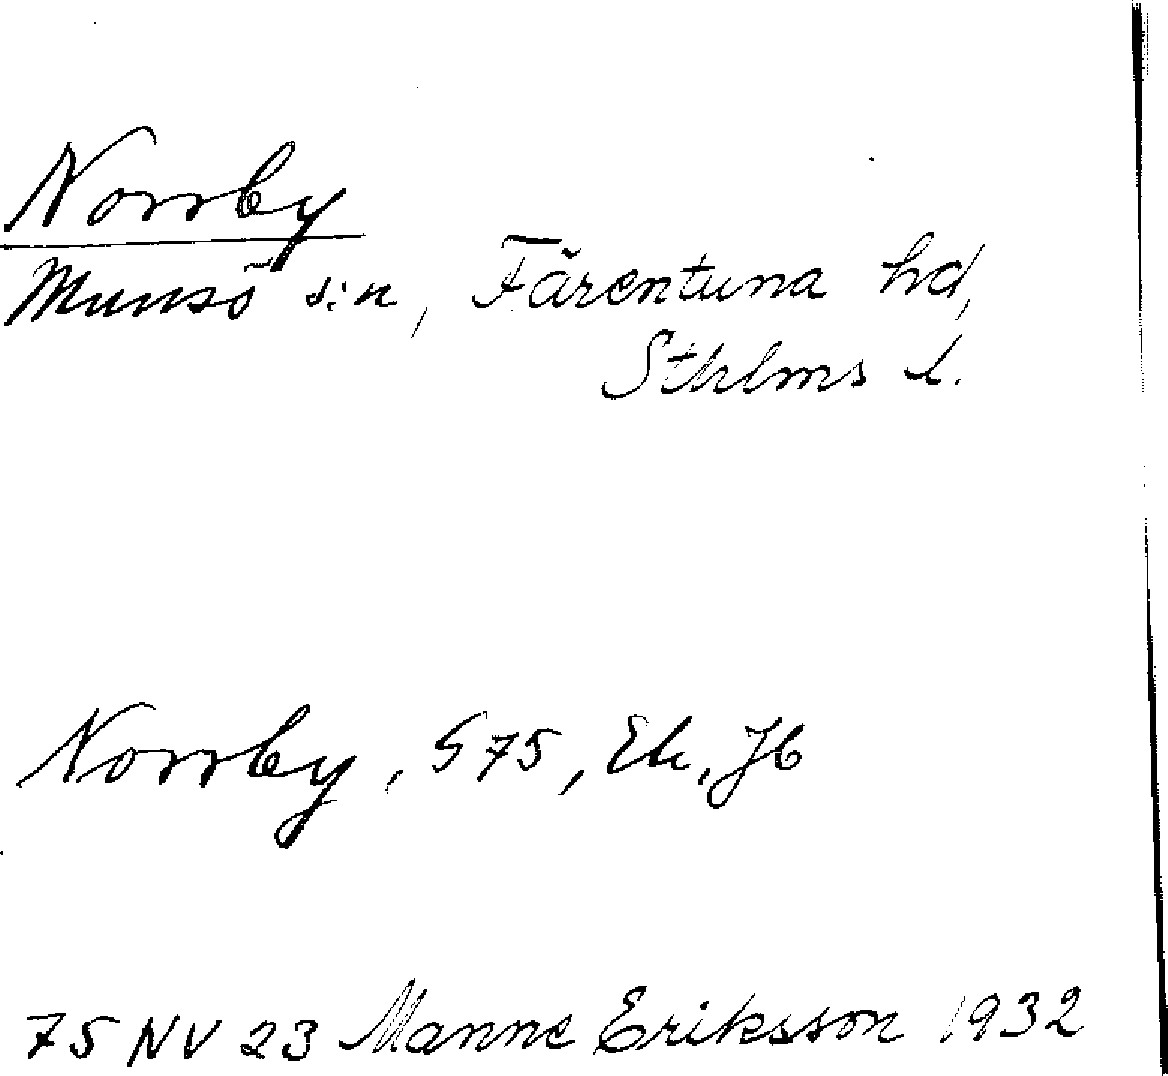 Norrby
Munsö s:n, Färentuna hd,
Sthlms l.
Norrby, G75, Ek, Jb
75 NV 23 Manne Eriksson 1932